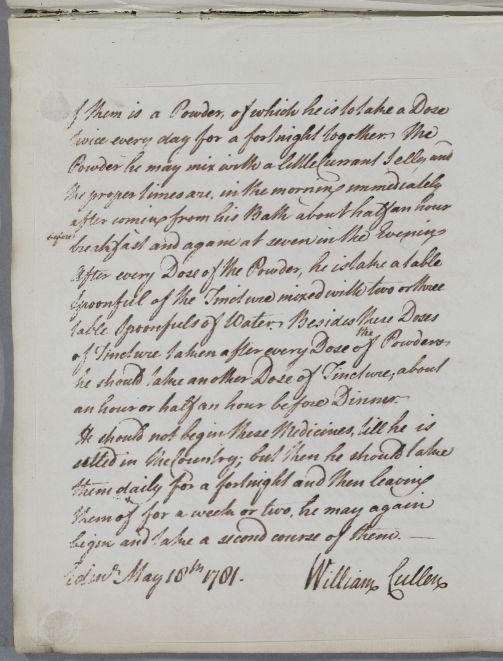 of them is a Powder, of which he is to take a Dose
twice every day for a fortnight together. The
Powder he may mix with a little currant Jelly and
the proper times are, in the morning immediately
after coming from his Bath about half an hour
before
breakfast and again at seven in the Evening
After every Dose of the Powder, he is take a table
spoonful of the Tincture mixed with two or three
table Spoonfuls of Water. Besides these Doses
of Tincture taken after every Dose of the Powder
he should take another Dose of Tincture, about
an hour or half an hour before Dinner.
He should not begin these Medicines, till he is
settled in the Country; but then he should take
them daily for a fortnight and then leaving
them off for a week or two, he may again
begin and take a second course of them. —
Edinr. May 18th 1781. William Cullen